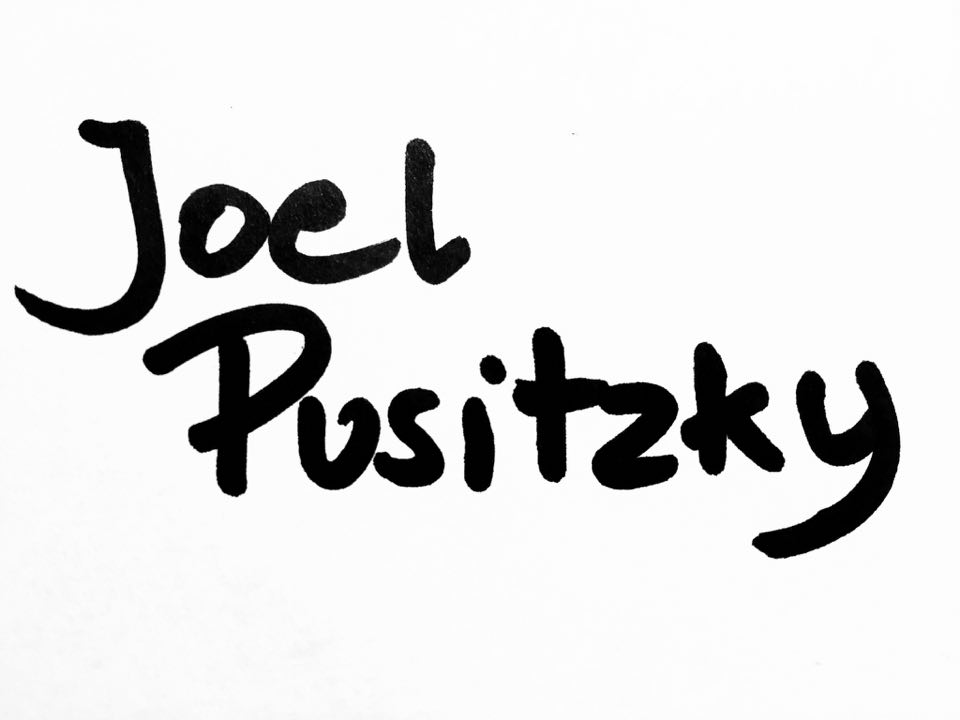 Joel
Pusitzky